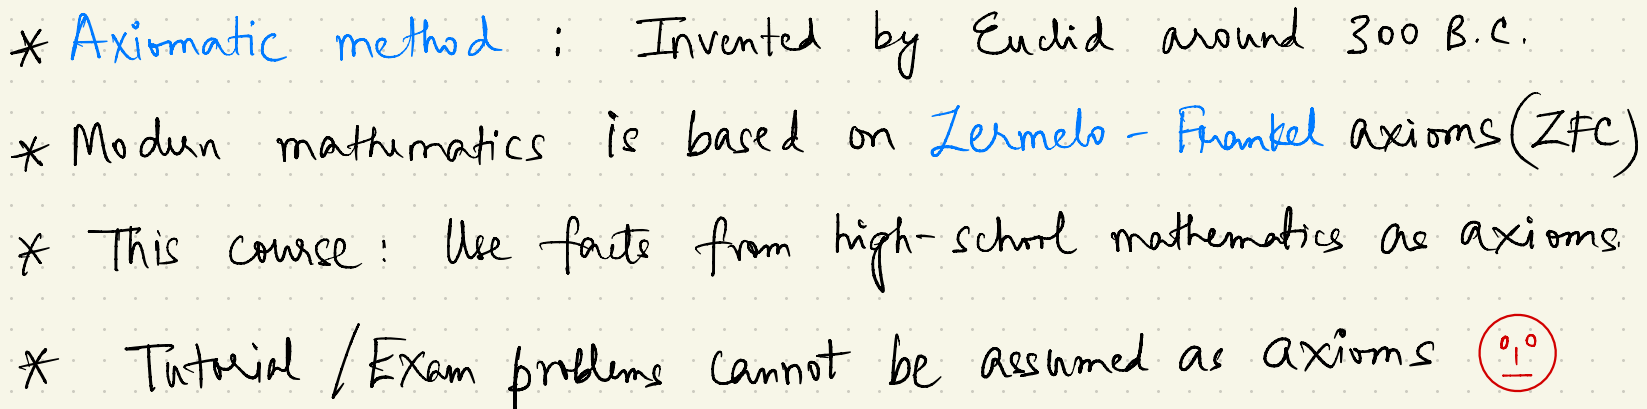 * Axiomatic method : Invented by Euclid around 300 B.C.
* Modern mathematics is based on Zermelo - Frankel axioms (ZFC)
* This course : Use facts from high-school mathematics as axioms.
* Tutorial / Exam problems cannot be assumed as axioms